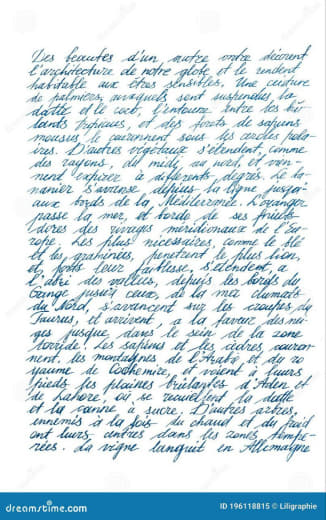 Des beautés d'un autre ordre décorent
l'architecture de notre globe et le rendent
habitable aux êtres sensibles. Une ceinture
de palmiers, auxquels sont suspendus la
datte et le coco, l'entoure entre les brû-
lants tropiques, et des forêts de sapins
mousseux le couronnent sous les cercles pola-
ires. D'autres végétaux s'étendent, comme
des rayons, du midi au nord, et vien-
nent expirer à différents degrés. Le ba-
nanier s'avance depuis la ligne jusqu'
aux bords de la Méditerranée. L'oranger
passe la mer, et borde de ses fruits
dorés des rivages méridionaux de l'Eu-
rope. Les plus nécessaires, comme le blé
et les graminées, pénètrent le plus loin,
et, forts leur faiblesse, s'étendent, à
l'abri des vallées, depuis les bords du
Gange jusqu'à ceux de la mer
du Nord, s'avancent sur les croupes du
Taurus, et arrivent, à la faveur des nei-
ges jusque dans le sein de la zone
torride. Les sapins et les cèdres couron-
nent les montagnes de l'Arabie et du ro-
yaume de Cachemire, et voient à leurs
pieds les plaines brûlantes d'Aden et
de Lahore, où se recueillent la datte
et la canne à sucre. D'autres arbres,
ennemis à la fois du chaud et du froid
ont leurs centres dans les zones tempé-
rées. La vigne languit en Allemagne
dreamstime.com
ID 196118815 © Liligraphie